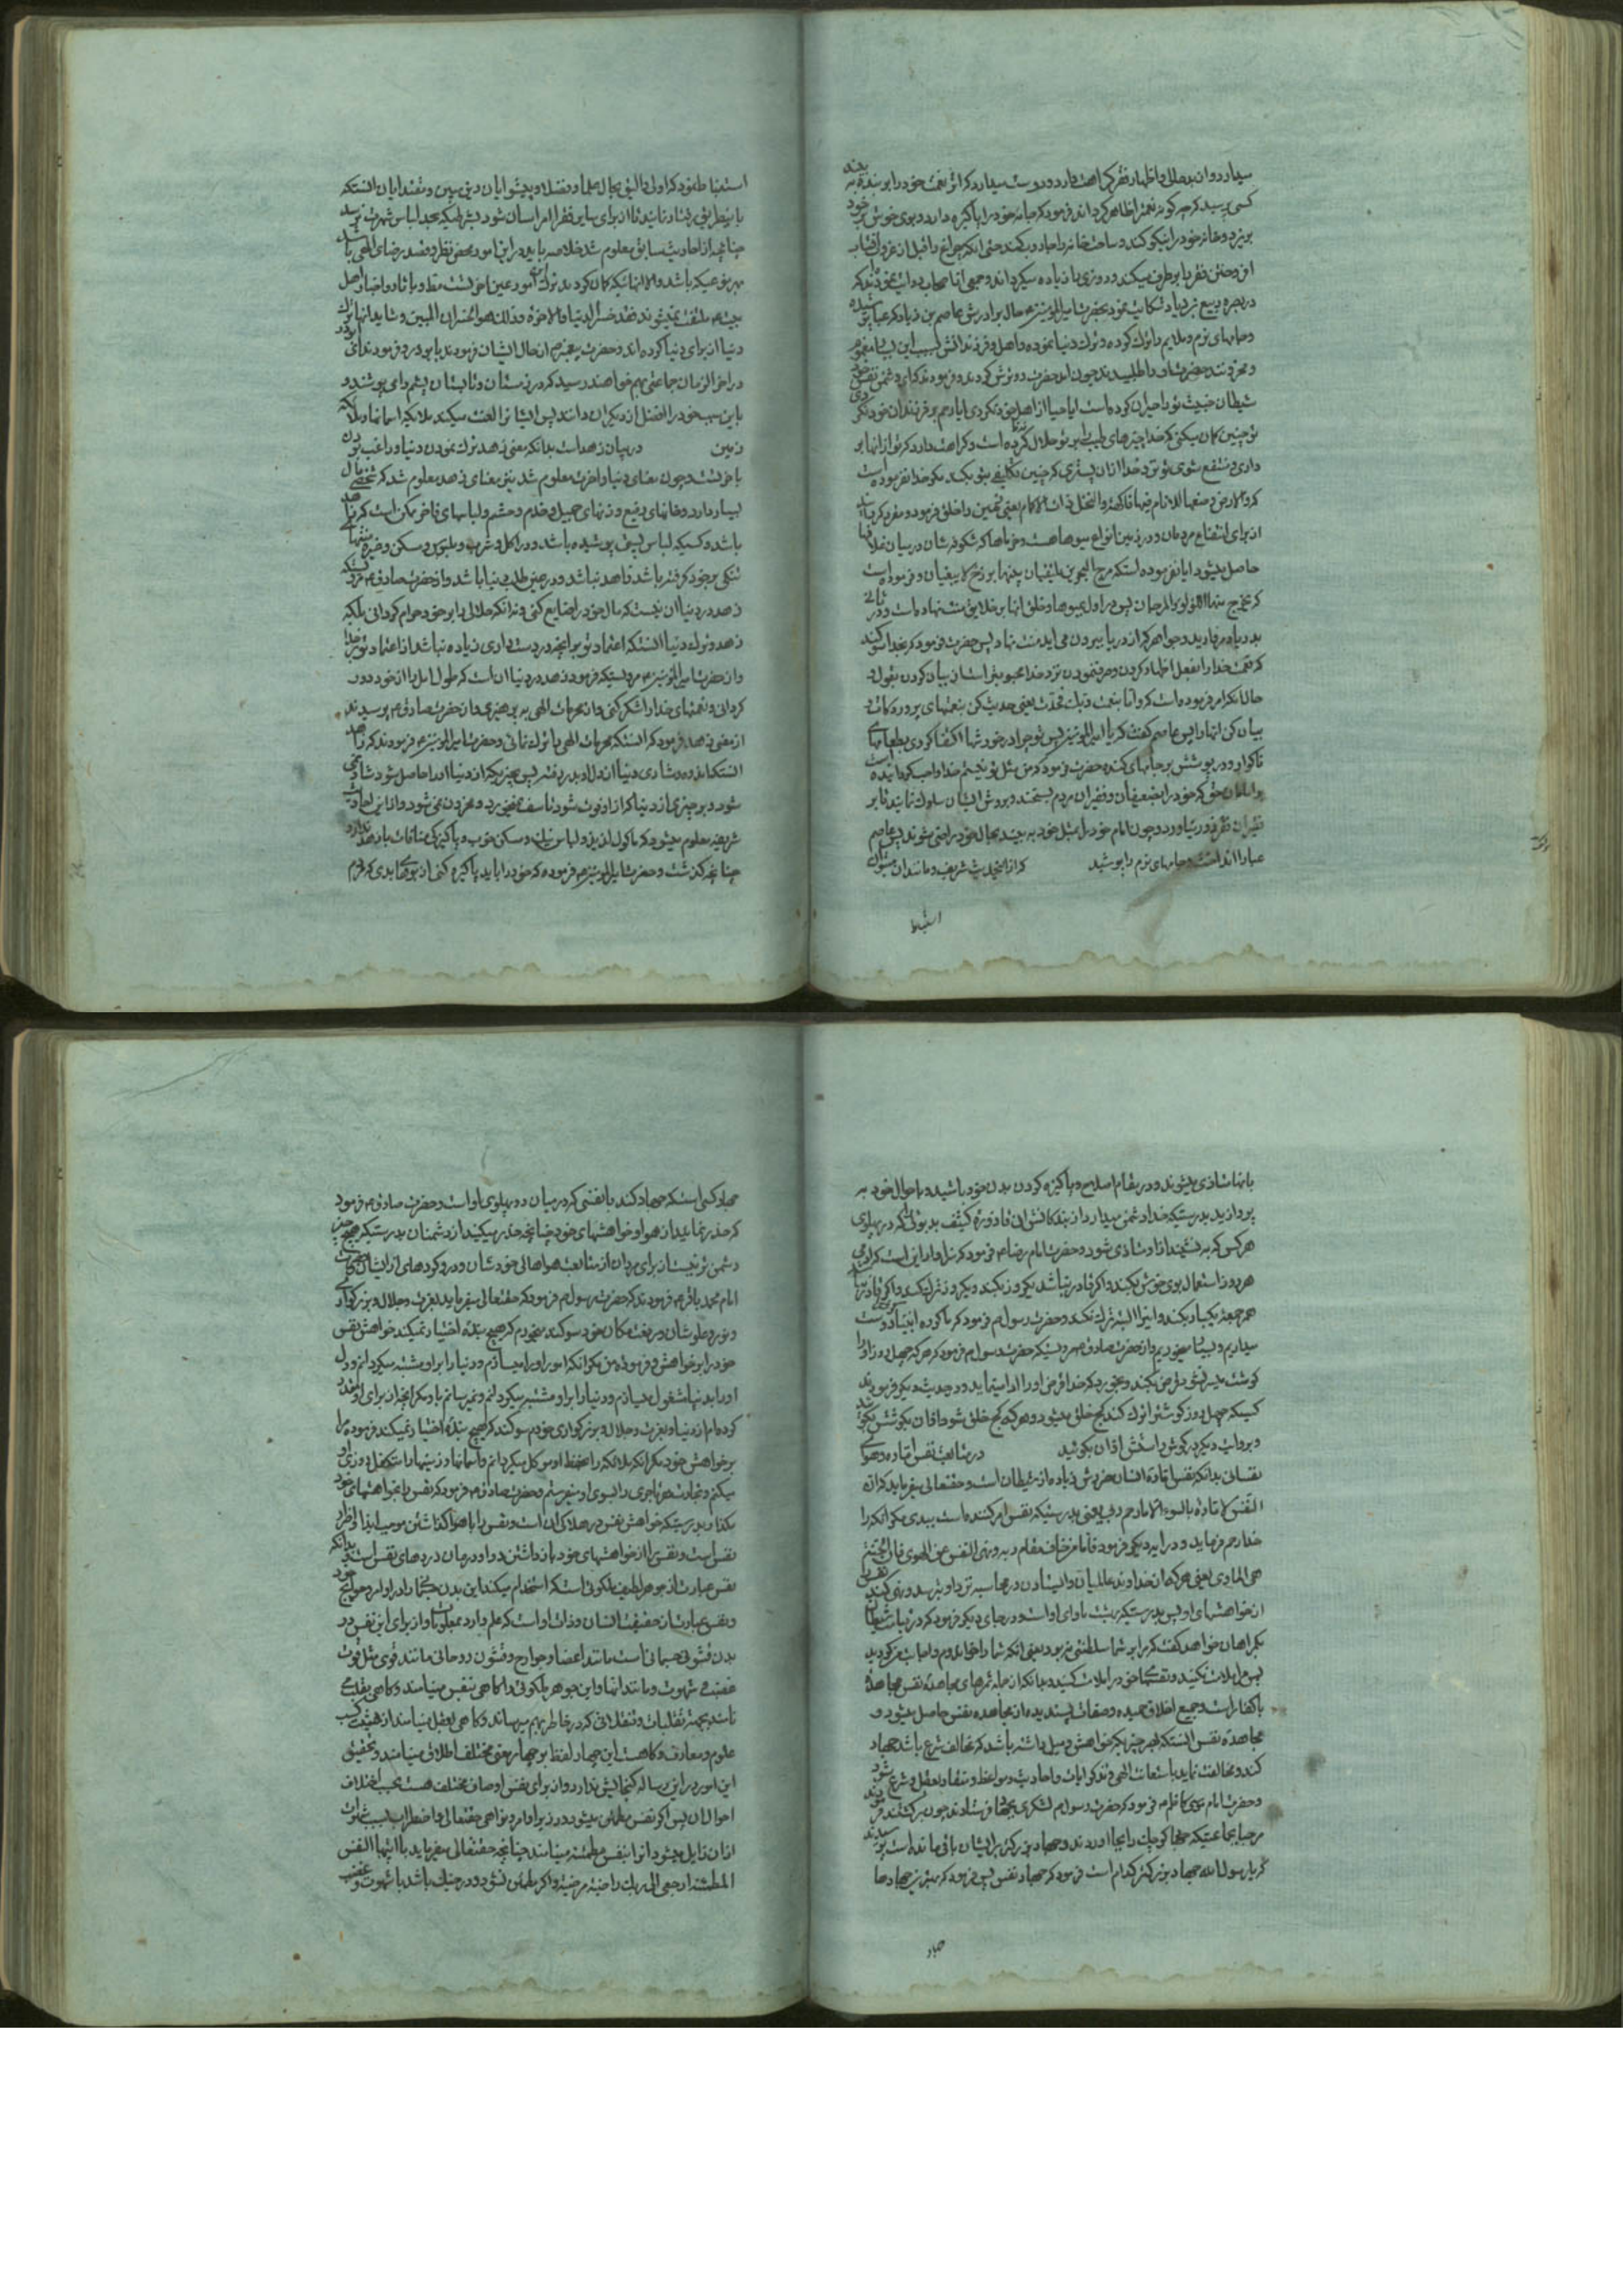 میدارد و ان بدحالی و اظهار فقر کراهت دارد و دوست میدارد که اثر نعمت خود را بر بنده به بیند
کسی پرسید که چه گونه نعمت را ظاهر گرداند فرمود که جامه خود را پاکیزه دارد و بوی خوش بر خود
بریزد و خانه خود را نیکو کند و ساحت خانه را جاروب کند حتی انکه چراغ را قبل از غروب افتاب
افروختن فقر را برطرف میکند و روزی را زیاده میگرداند و جمعی از اصحاب روایت نموده اند که
در بصره ربیع بن زیاد شکایت نمود بحضرت امیر المؤمنین ع حال برادرش عاصم بن زیاد که عبا پوشیده
و جامهای نرم و ملایم را ترک کرده و ترک دنیا نموده و اهل و فرزندانش بسبب این مغموم
و محزونند حضرت او را طلبیدند چون امد حضرت رو ترش کردند و فرمودند که ای دشمن نفس خود
شیطان خبیث تو را حیران کرده است ایا حیا از اهل خود نکردی ایا رحم بر فرزندان خود نکردی
تو چنین کمان میکنی که خدا چیزهای طیب را بر تو حلال کرده است و کراهت دارد که تو از انها بر
داری و منتفع شوی تو نزد خدا ازان پستتری که چنین تکلیفی بتو بکند مگر خدا نفرموده است
که و الارض وضعها للانام فیها فاکهة والنخل ذات الاکمام یعنی زمین را خلق فرمود و مقرر کرد
از برای انتفاع مردمان و در زمین انواع میوها هست و خرماها که شکوفه شان در میان غلافها
حاصل میشود ایا نفرموده است که مرج البحرین یلتقیان بینهما برزخ لا یبغیان و فرموده است
که یخرج منهما اللؤلؤ والمرجان پس در اول بمیوها و خلق انها بر خلایق منت نهاده است و در ثانی
بدریا و مروارید و جواهر که از دریا بیرون می اید منت نهاد پس حضرت فرمود که بخدا سوکند
که نعمت خدا را بفعل اظهار کردن و صرف نمودن نزد خدا محبوبتر است از بیان کردن بقول و
حال انکه امر فرموده است که و اما بنعمت ربک فحدث یعنی حدیث کن بنعمتهای پروردکارت و
بیان کن انها را پس عاصم کفت که یا امیر المؤمنین پس تو چرا در خورشها اکتفا کردی بطعامهای
ناکوار و در پوشش بر جامهای کنده حضرت فرمود که من مثل تو نیستم خدا واجب کردانیده است
بر امامان حق که خود را بضعیفان و فقیران مردم بسنجند و بروش ایشان سلوک نمایند تا بر
فقیران فقر زور نیاورد و چون امام خود را بمثل خود به بینند بحال خود راضی شوند پس عاصم
عبا را انداخت و جامهای نرم را پوشید که از این حدیث شریف و مانند ان میتوان
استنباط
استنباط نمود که اولی و الیق بحال علما و فضلا و پیشوایان دین مبین و مقتدایان انستکه
باینطریق رفتار نمایند تا از برای سایر فقرا امر اسان شود بشرطیکه بحد لباس شهرت نرسد
چنانچه از احادیث سابق معلوم شد خلاصه باید در این امور محض نظر و قصد رضای الهی باشد
بهر نوعیکه باشد و الا انهائیکه کمان کرده اند ترک این امور عین اخرتست فقط و باثار و اخبار اهل
بیت ع ملتفت نمیشوند فقد خسر الدنیا والاخرة وذلک هو الخسران المبین و شاید انها ترک
دنیا از برای دنیا کرده اند و حضرت پیغمبر ص از حال ایشان فرمودند بابو ذر و فرمودند ای ابو ذر
در اخر الزمان جماعتی بهم خواهند رسید که در زمستان و تابستان پشم را می پوشند و
باین سبب خود را افضل از دیکران دانند پس ایشانرا لعنت میکند ملائکه اسمانها و ملائکه
زمین در بیان زهد است بدانکه معنی زهد ترک نمودن دنیا و راغب بودن
باخرتست و چون معنای دنیا و اخرت معلوم شد یعنی معنای زهد معلوم شد که شخصی مال
بسیار دارد و خانهای رفیع و زنهای جمیل و خدم و حشم و لباسهای فاخر ممکن است که زاهد
باشد و کسیکه لباس لیف پوشیده باشد و در اکل و شرب و ملبوس و مسکن و غیره منتهای
تنکی بر خود کرفته باشد زاهد نباشد و در عین طلب دنیا باشد و از حضرت صادق ع مرویستکه
زهد در دنیا ان نیست که مال خود را ضایع کنی و نه انکه حلالی را بر خود حرام کردانی بلکه
زهد و ترک دنیا انستکه اعتماد تو بر انچه در دست داری زیاده نباشد از اعتماد تو بر خدا
و از حضرت امیر المؤمنین ع مرویستکه فرمود زهد در دنیا ان است که طول امل را از خود دور
کردانی و نعمتهای خدا را شکر کنی و از محرمات الهی به پرهیزی و از حضرت صادق ع پرسیدند
از معنی زهد فرمود که انستکه محرمات الهی را ترک نمائی و حضرت امیر المؤمنین ع فرمودند که زاهد
انستکه اندوه و شادی دنیا از دل او بدر رفته پس بچیزیکه از دنیا او را حاصل شود شاد نمی
شود و بر چیزی از دنیا که از او فوت شود تاسف نمیخورد و محزون نمی شود و از این احادیث
شریفه معلوم میشود که ماکول لذیذ و لباس نیک و مسکن خوب و پاکیزکی منافات با زهد ندارد
چنانچه کذشت و حضرت امیر المؤمنین ع فرموده که خود را باید پاکیزه کنی از بوهای بدی که مردم
بانها متاذی میشوند و در مقام اصلاح و پاکیزه کردن بدن خود باشید و باحوال خود به
پردازید بدرستیکه خدا دشمن میدارد از بندکانش ان قاذوره کثیف بد بوئی را که در پهلوی
هر کس که به نشیند از او متاذی شود و حضرت امام رضا ع فرمود که سزاوار این است که ادمی
هر روز استعمال بوی خوش بکند و اکر قادر نباشد یکروز بکند و یکروز ترک کند و اکر قادر نباشد
هر جمعه یکبار بکند و اینرا البته ترک نکند و حضرت رسول ص فرمود که ما کروه انبیا کوشت دوست
میداریم و بسیار میخوریم و از حضرت صادق ع مرویستکه حضرت رسول ص فرمود که هر که چهل روز او را
کوشت میسر نشود قرض بکند و بخورد که خدا قرض او را ادا مینماید و در حدیث دیکر فرمودند
کسیکه چهل روز کوشت را ترک کند کج خلق میشود و هر که کج خلق شود اذان بکوشش بکوئید
و بروایت دیکر در کوش راستش اذان بکوئید در متابعت نفس اماره و هوای
نفسانی بدانکه نفس اماره انسان ضررش زیاده از شیطان است و حقتعالی میفرماید که ان
النفس لامارة بالسوء الا ما رحم ربی یعنی بدرستیکه نفس امر کننده است ببدی مکر انکه را
خدا رحم فرماید و در ایه دیکر فرمود فاما من خاف مقام ربه و نهی النفس عن الهوی فان الجنة
هی الماوی یعنی هر که از خداوند عالمیان و ایستادن در محاسبه نزد او بترسد و نهی کند نفس را
از خواهشهای او پس بدرستیکه بهشت ماوای او است و در جای دیکر فرمود که در قیامت شیطان
بکمراهان خواهد کفت که مرا بر شما سلطنتی نبود یعنی انکه شما را خواندم و اجابت من کردید
پس مرا ملامت نکنید و نفسهای خود را ملامت کنید و بدانکه از جمله ثمرهای مجاهده نفس مجاهده
با کفار است و جمیع اخلاق حمیده و صفات پسندیده از مجاهده نفس حاصل میشود و
مجاهده نفس انستکه بهر چیزیکه خواهش و میل داشته باشد که مخالف شرع باشد جهاد
کند و مخالفت نماید باستعانت الهی و تذکر ایات و احادیث و مواعظ و منقاد بعقل و شرع شود
و حضرت امام موسی کاظم ع فرمود که حضرت رسول ص لشکری بجهاد فرستادند چون برکشتند فرمودند
مرحبا بجماعتیکه جهاد کوچک را بجا اوردند و جهاد بزرکتر بر ایشان باقی مانده است پرسیدند
که یا رسول الله جهاد بزرکتر کدام است فرمود که جهاد نفس پس فرمود که بهترین جهادها
جهاد
جهاد کسی استکه جهاد کند با نفسی که در میان دو پهلوی او است و حضرت صادق ع فرمود
که حذر نمایید از هوا و خواهشهای خود چنانچه حذر میکنید از دشمنان بدرستیکه هیچ چیز
دشمن تر نیست از برای مردان از متابعت هواهای خودشان و درو کردهای از ایشان
امام محمد باقر ع فرمودند که حضرت رسول ص فرمود که حقتعالی میفرماید بعزت و جلال و بزرکواری
و نور و علو شان و رفعت مکان خود سوکند میخورم که هیچ بنده اختیار نمیکند خواهش نفس
خود را بر خواهش و فرموده من مکر انکه امور او را میسازم و دنیا را بر او مشتبه میکردانم و دل
او را بدنیا مشغول میسازم و دنیا را بر او مشتبه میکردانم و نمیرسانم باو مکر انچه از برای او مقدر
کرده ام از دنیا و بعزت و جلال و بزرکواری خودم سوکند که هیچ بنده اختیار نمیکند فرموده مرا
بر خواهش خود مکر انکه ملائکه را بحفظ او موکل میکردانم و اسمانها و زمینها را متکفل روزی او
میکنم و تجارت هر تاجری را بسوی او میفرستم و حضرت صادق ع فرمود که نفس را بخواهشهای خود
مکذار بدرستیکه خواهش نفس در هلاک ان است و نفس را با هوا کذاشتن موجب ایذا و اضرار
نفس است و نفس را از خواهشهای خود باز داشتن دوا و درمان دردهای نفس است و بدانکه
نفس عبارت از جوهر لطیف ملکوتی است که استخدام میکند این بدن را در اوامر و حوایج خود
و نفس عبارت از حقیقت انسان و ذات او است که علم دارد بمعلومات و از برای این نفس در
بدن قشونی جسمانی است مانند اعضا و جوارح و قشون روحانی مانند قوی مثل قوت
غضب و شهوت و مانند انها و این جوهر ملکوتی را کاهی نفس مینامند و کاهی بقلب
نامند بجهت تقلبات و تنقلاتی که در خاطر بهم میرساند و کاهی بعقل مینامند از جهت کسب
علوم و معارف و کاهست این چهار لفظ بر چهار معنی مختلف اطلاق مینمایند و تحقیق
این امور در این رساله کنجایش ندارد و از برای نفس اوصاف مختلف هست بحسب اختلاف
احوال ان پس اکر نفس مطمئن میشود در زیر اوامر و نواهی حقتعالی و اضطراب بسبب شهوات
از ان زایل میشود انرا نفس مطمئنه مینامند چنانچه حقتعالی میفرماید یا ایتها النفس
المطمئنة ارجعی الی ربک راضیة مرضیة و اکر مطمئن نشود و در جنک باشد با شهوت و غضب